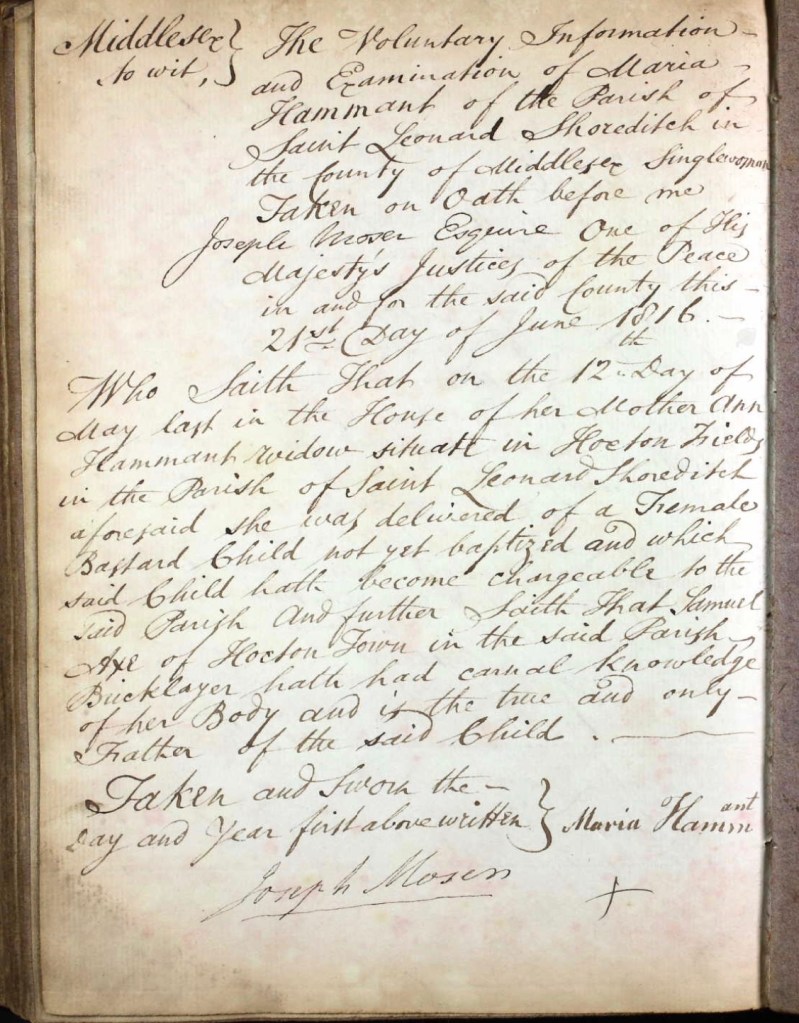 Middlesex } The Voluntary Information
to wit, and Examination of Maria
Hammant of the Parish of
Saint Leonard Shoreditch in
the County of Middlesex Singlewoman
Taken on Oath before me
Joseph Moser Esquire One of His
Majesty's Justices of the Peace
in and for the said County this
21st Day of June 1816.
Who Saith That on the 12th Day of
May last in the House of her Mother Ann
Hammant Widow situate in Hocton Fields
in the Parish of Saint Leonard Shoreditch
aforesaid she was delivered of a Female
Bastard Child not yet baptized and which
said Child hath become chargeable to the
said Parish And further Saith That Samuel
Axe of Hocton Town in the said Parish
Bricklayer hath had carnal knowledge
of her Body and is the true and only
Father of the said Child.
Taken and Sworn the
Day and Year first above written } Maria Hammant
Joseph Moser +